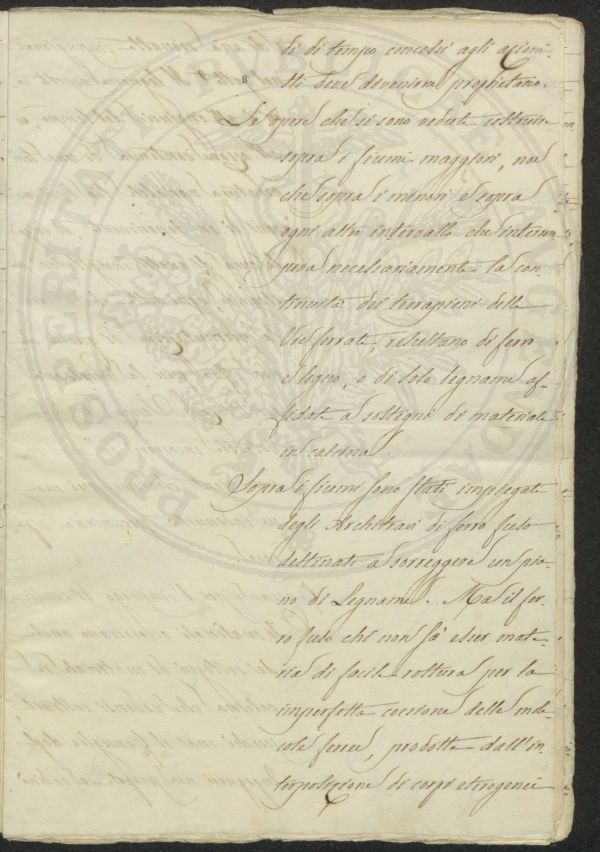 di di tempo concessi agli azioni-
sti deve divenirne proprietario.
8
Le opere che si sono vedute costruire
sopra i fiumi maggiori, non
che sopra i minori e sopra
ogni altro intervallo che interrom
pesse necessariamente la con
tinuità dei terrapieni delle
Vie ferrate, resultano di ferro
e legno, o di solo legname af-
fidate a sostegni di materiale
in calcina.
Sopra i fiumi sono stati impiegati
degli Architravi di ferro fuso
destinati a sorreggere un pia-
no di Legname. Ma il fer-
ro fuso chi non sà esser mate-
ria di facile rottura per la
imperfetta coesione delle mole
cole ferree, prodotta dall'in-
terposizione di corpi etrogenei
PROSPERITATI PUBLICAE AUGENDAE